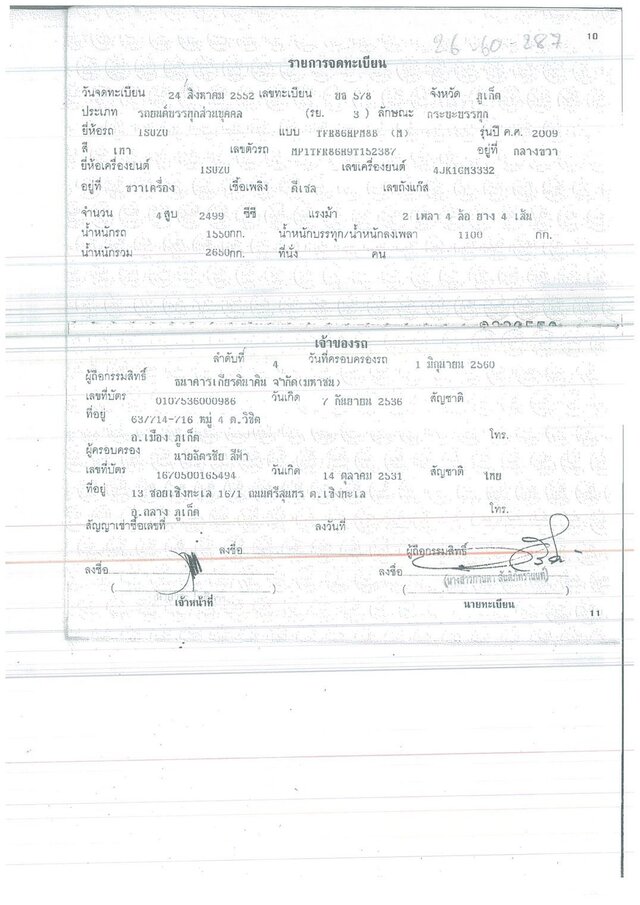 26-60-287
10
รายการจดทะเบียน
วันจดทะเบียน 24 สิงหาคม 2552 เลขทะเบียน 578 จังหวัด ภูเก็ต
ประเภท รถยนต์บรรทุกส่วนบุคคล (รย. 3) ลักษณะ กระบะบรรทุก
ยี่ห้อรถ ISUZU แบบ TFR86HPM8B (M) รุ่นปี ค.ศ. 2009
สี เทา เลขตัวรถ MP1TFR86H9T152387 อยู่ที่ กลางขวา
ยี่ห้อเครื่องยนต์ ISUZU เลขเครื่องยนต์ 4JK1GM3332
อยู่ที่ ขวาเครื่อง เชื้อเพลิง ดีเซล เลขถังแก๊ส
จำนวน 4 สูบ 2499 ซีซี แรงม้า 2 เพลา 4 ล้อ ยาง 4 เส้น
น้ำหนักรถ 1550 กก. น้ำหนักบรรทุก/น้ำหนักลงเพลา 1100 กก.
น้ำหนักรวม 2650 กก. ที่นั่ง คน
เจ้าของรถ
ลำดับที่ 4 วันที่ครอบครองรถ 1 มิถุนายน 2560
ผู้ถือกรรมสิทธิ์ ธนาคารเกียรตินาคิน จำกัด(มหาชน)
เลขที่บัตร 0107536000986 วันเกิด 7 กันยายน 2536 สัญชาติ
ที่อยู่ 63/714-716 หมู่ 4 ต.วิชิต
อ.เมือง ภูเก็ต โทร.
ผู้ครอบครอง นายฉัตรชัย สีฟ้า
เลขที่บัตร 1670500165494 วันเกิด 14 ตุลาคม 2531 สัญชาติ ไทย
ที่อยู่ 13 ซอยเชิงทะเล 16/1 ถนนศรีสุนทร ต.เชิงทะเล
อ.ถลาง ภูเก็ต โทร.
สัญญาเช่าซื้อเลขที่ ลงวันที่
ลงชื่อ ผู้ถือกรรมสิทธิ์
ลงชื่อ ลงชื่อ
เจ้าหน้าที่ นายทะเบียน
11